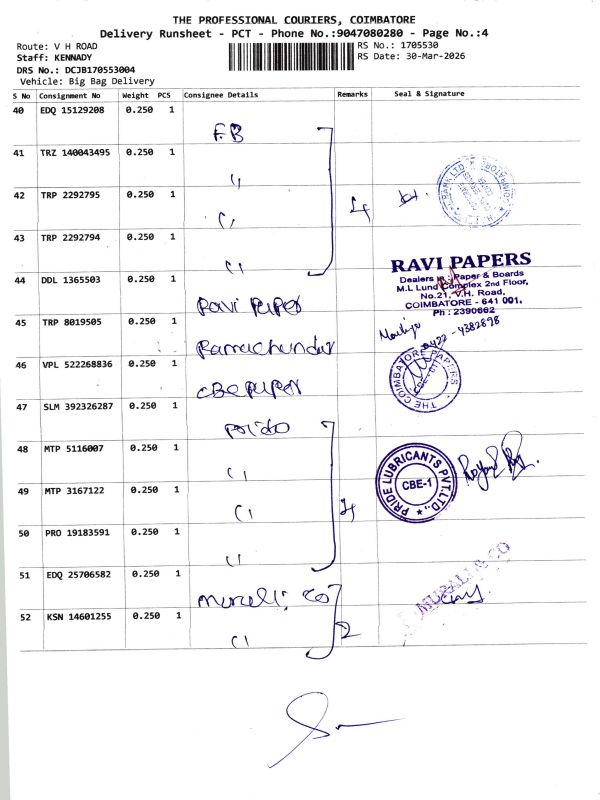 THE PROFESSIONAL COURIERS, COIMBATORE
Delivery Runsheet - PCT - Phone No.:9047080280 - Page No.:4
Route: V H ROAD
RS No.: 1705530
Staff: KENNADY
RS Date: 30-Mar-2026
DRS No.: DCJB170553004
Vehicle: Big Bag Delivery
S No Consignment No Weight PCS Consignee Details Remarks Seal & Signature
40 EDQ 15129208 0.250 1
F.B
41 TRZ 140043495 0.250 1
"
42 TRP 2292795 0.250 1
" 4
43 TRP 2292794 0.250 1
"
44 DDL 1365503 0.250 1
Ravi Paper
RAVI PAPERS
Dealers in : Paper & Boards
M.L Lund Complex 2nd Floor,
No.21, V.H. Road,
COIMBATORE - 641 001.
Ph : 2390662
45 TRP 8019505 0.250 1
Ramachundar
0422 - 4382898
46 VPL 522268836 0.250 1
CBE Paper
THE COIMBATORE PAPERS
CBE-01
47 SLM 392326287 0.250 1
Pride
48 MTP 5116007 0.250 1
"
PRIDE LUBRICANTS PVT.LTD.,
CBE-1
49 MTP 3167122 0.250 1
" 4
50 PRO 19183591 0.250 1
"
51 EDQ 25706582 0.250 1
Murali. Co
MURALI & CO
52 KSN 14601255 0.250 1
" 2